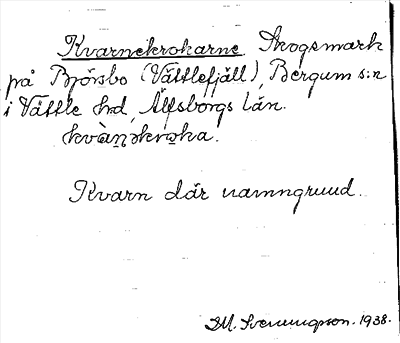 Kvarnekrokarne. Skogsmark
på Björsbo (Vättlefjäll), Bergum s:n
i Vättle hd, Älfsborgs län.
kvà̱ṇəkro̱ka.
Kvarn där namngrund.
M. Svenungsson. 1938.